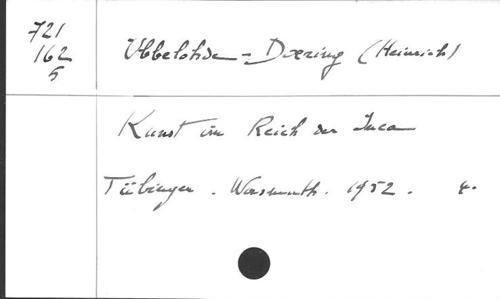 721
162
5
Ubbelohde-Doering (Heinrich)
Kunst im Reich der Inca
Tübingen. Wasmuth. 1952. 4.